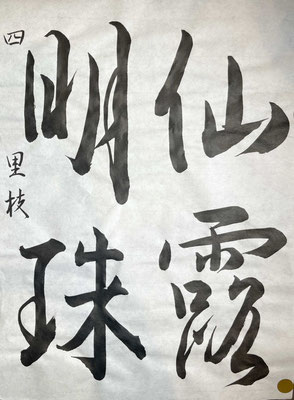 仙露
明珠
四 里枝